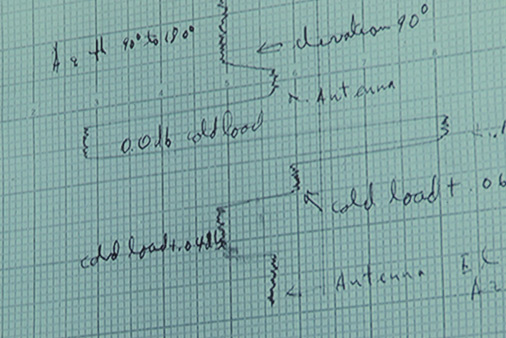 Az th 90° to 180°
elevation 90°
Antenna
0.0 db cold load
cold load + .06
cold load + .04db
Antenna
Az